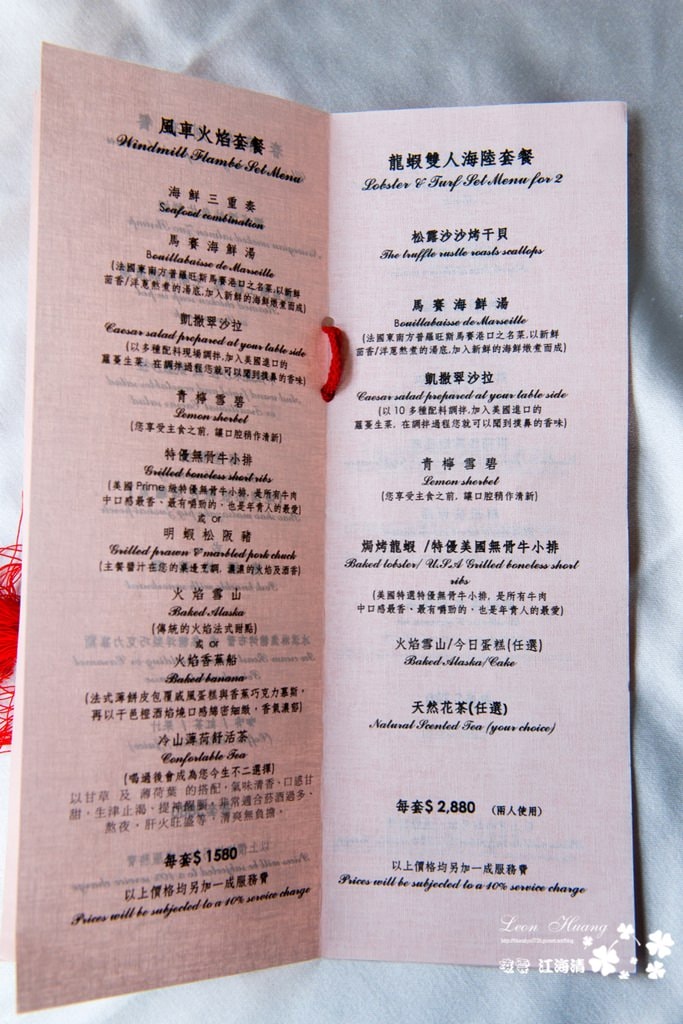 風車火焰套餐
Windmill Flambé Set Menu
海鮮三重奏
Seafood combination
馬賽海鮮湯
Bouillabaisse de Marseille
(法國東南方普羅旺斯馬賽港口之名菜,以新鮮
茴香/洋蔥熬煮的湯底,加入新鮮的海鮮燉煮而成)
凱撒翠沙拉
Caesar salad prepared at your table side
(以多種配料現場調拌,加入美國進口的
蘿蔓生菜, 在調拌過程您就可以聞到撲鼻的香味)
青檸雪碧
Lemon sherbet
(您享受主食之前, 讓口腔稍作清新)
特優無骨牛小排
Grilled boneless short ribs
(美國 Prime 級特優無骨牛小排, 是所有牛肉
中口感最香、最有嚼勁的, 也是年貴人的最愛)
或 or
明蝦松阪豬
Grilled prawn & marbled pork chuck
(主餐醬汁在您的桌邊烹調, 濃濃的火焰及酒香)
火焰雪山
Baked Alaska
(傳統的火焰法式甜點)
或 or
火焰香蕉船
Baked banana
(法式薄餅皮包覆戚風蛋糕與香蕉巧克力慕斯,
再以干邑橙酒焰燒口感綿密細緻, 香氣濃郁)
冷山薄荷舒活茶
Comfortable Tea
(喝過後會成為您今生不二選擇)
以甘草 及 薄荷葉 的搭配, 氣味清香、口感甘
甜, 生津止渴、提神醒腦, 非常適合菸酒過多、
熬夜、肝火旺盛等, 清爽無負擔。
每套$ 1580
以上價格均另加一成服務費
Prices will be subjected to a 10% service charge
龍蝦雙人海陸套餐
Lobster & Turf Set Menu for 2
松露沙沙烤干貝
The truffle rustle roasts scallops
馬賽海鮮湯
Bouillabaisse de Marseille
(法國東南方普羅旺斯馬賽港口之名菜,以新鮮
茴香/洋蔥熬煮的湯底,加入新鮮的海鮮燉煮而成)
凱撒翠沙拉
Caesar salad prepared at your table side
(以 10 多種配料調拌,加入美國進口的
蘿蔓生菜, 在調拌過程您就可以聞到撲鼻的香味)
青檸雪碧
Lemon sherbet
(您享受主食之前, 讓口腔稍作清新)
焗烤龍蝦 /特優美國無骨牛小排
Baked lobster/ U.S.A Grilled boneless short
ribs
(美國特選特優無骨牛小排, 是所有牛肉
中口感最香、最有嚼勁的, 也是年貴人的最愛)
火焰雪山/今日蛋糕(任選)
Baked Alaska/Cake
天然花茶(任選)
Natural Scented Tea (your choice)
每套$ 2,880 (兩人使用)
以上價格均另加一成服務費
Prices will be subjected to a 10% service charge
Leon Huang
江海清